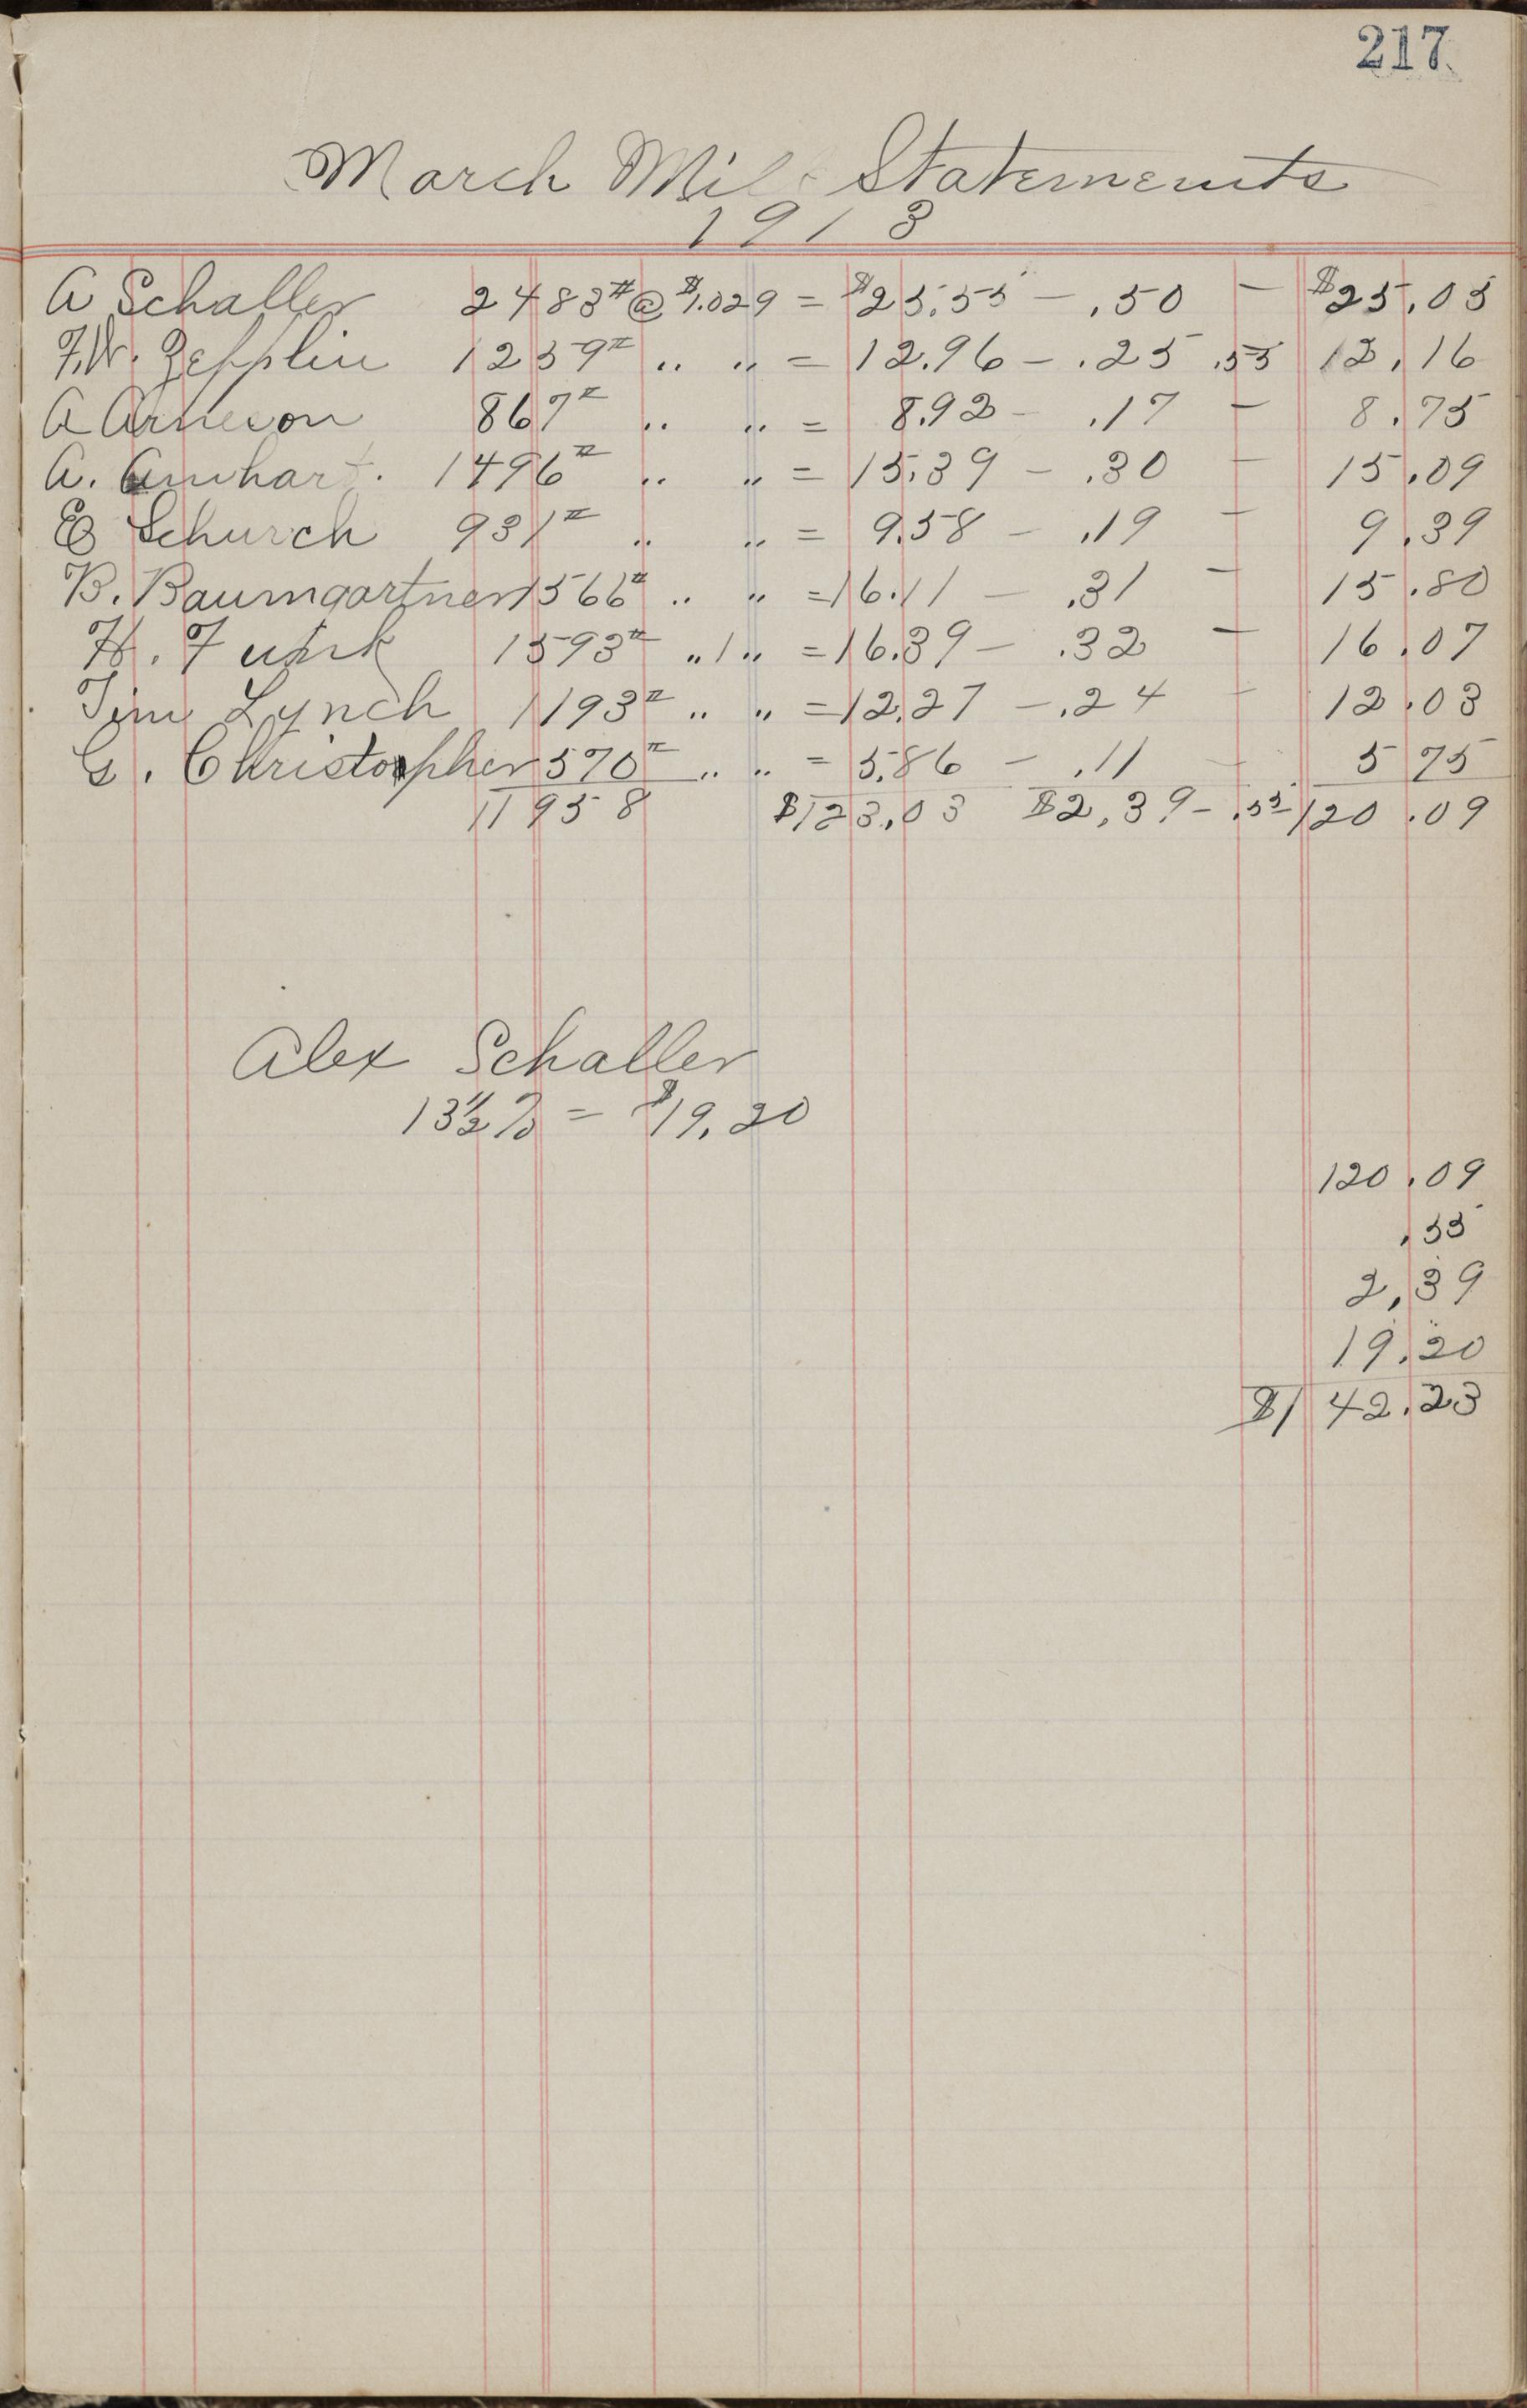 217
March Milk Statements
1913
A Schaller 2483# @ $1.029 = $25.55 - .50 - $25.05
F.W. Zepplin 1259# " " = 12.96 - .25 .55 12.16
A Arneson 867# " " = 8.92 - .17 - 8.75
A. Amhart. 1496# " " = 15.39 - .30 - 15.09
E Schurch 931# " " = 9.58 - .19 - 9.39
B. Baumgartner 1566# " " = 16.11 - .31 - 15.80
H. Funk 1593# " " = 16.39 - .32 - 16.07
Jim Lynch 1193# " " = 12.27 - .24 - 12.03
G. Christopher 570# " " = 5.86 - .11 - 5 75
11958 $123.03 $2.39 - .55 120.09
Alex Schaller
13½% = $19.20
120.09
.55
2.39
19.20
$142.23